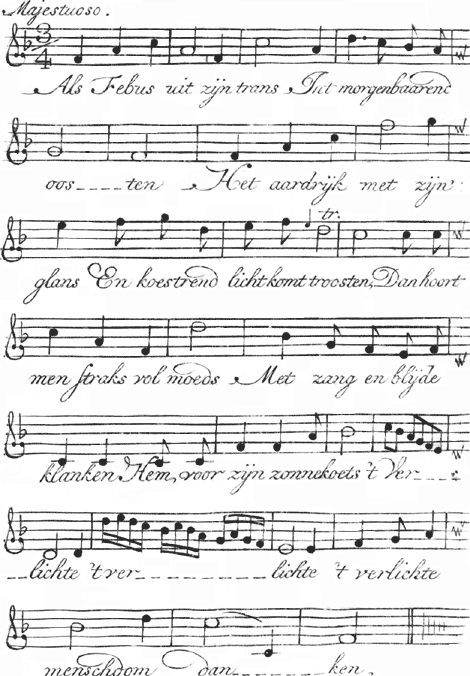 Majestuoso.
3/4
Als Febus uit zijn trans Uit morgenbaarend
oos____ten Het aardrijk met zijn
tr.
glans En koestrend licht komt troosten, Dan hoort
men straks vol moeds Met zang en blijde
klanken Hem, voor zijn zonnekoets 't Ver____
__lichte 't ver__________lichte 't verlichte
menschdom dan______ken.